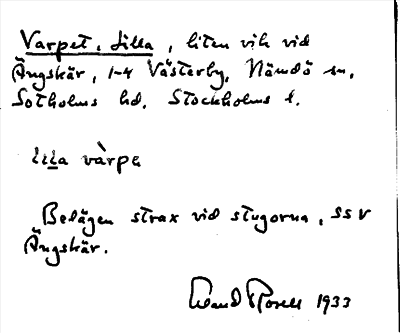 Varpet, Lilla, liten vik vid
Ängskär, 1-4 Västerby, Nämdö sn,
Sotholms hd. Stockholms l.
lila vàrpe
Belägen strax vid stugorna, SSV
Ängskär.
1933